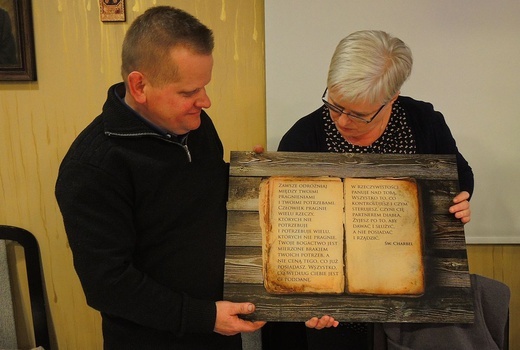 ZAWSZE ODRÓŻNIAJ
MIĘDZY TWOIMI
PRAGNIENIAMI
I TWOIMI POTRZEBAMI.
CZŁOWIEK PRAGNIE
WIELU RZECZY,
KTÓRYCH NIE
POTRZEBUJE
I POTRZEBUJE WIELU,
KTÓRYCH NIE PRAGNIE.
TWOJE BOGACTWO JEST
MIERZONE BRAKIEM
TWOICH POTRZEB, A
NIE CENĄ TEGO, CO JUŻ
POSIADASZ. WSZYSTKO,
CO WYDAJE CIEBIE JEST
CI PODDANE.
W RZECZYWISTOŚCI
PANUJE NAD TOBĄ
WSZYSTKO TO, CO
KONTROLUJESZ. CZYM
STERUJESZ, CZYNI CIĘ
PARTNEREM DIABŁA.
ŻYJESZ PO TO, ABY
DAWAĆ I SŁUŻYĆ,
A NIE POSIADAĆ
I RZĄDZIĆ.
ŚW. CHARBEL